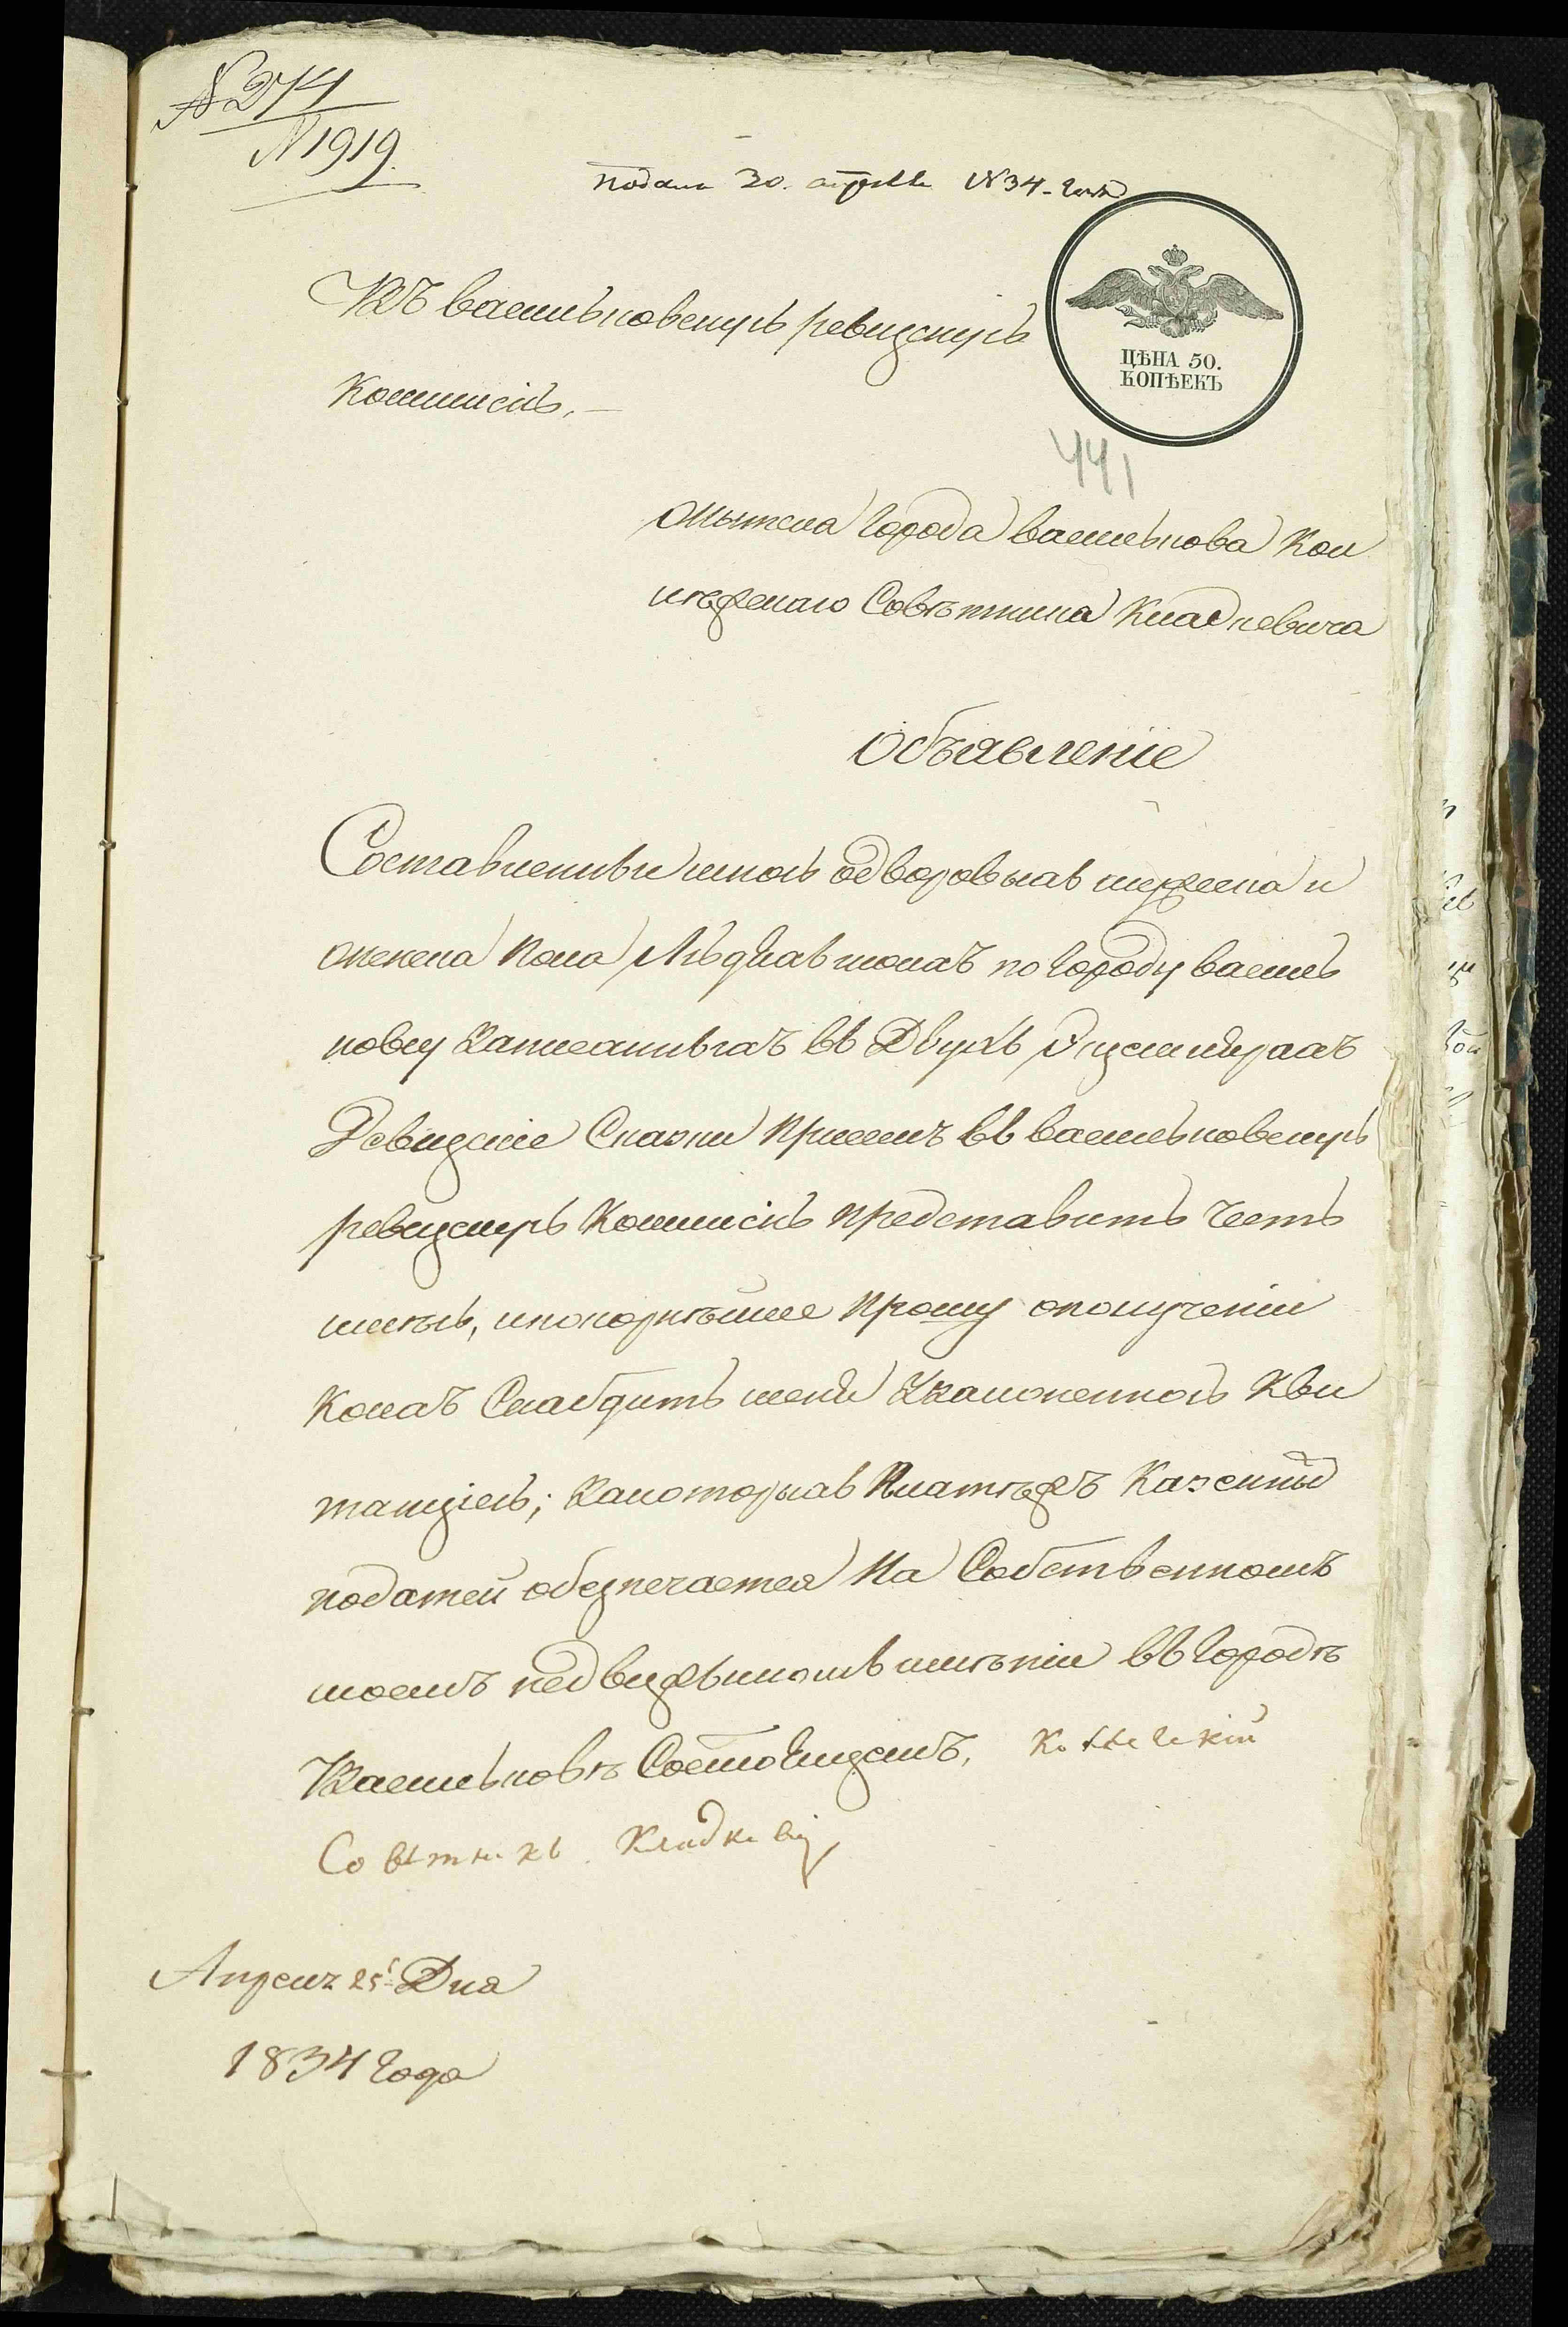 № 274
№ 1919.
подано 30. апреля 1834-года
Въ васильковскую ревизскую
ЦѢНА 50.
КОПѢЕКЪ
Коммисію.
441
Отжителя Города василькова Кол
лѣжскаго Совѣтника Кладкевича
Объявленіе
Составленные мною одворовыхъ мужеска и
женска пола людяхъ моихъ по Городу василь
кову записанныхъ въ Двухъ Экземплярахъ
Ревизскіе Сказки Присемъ въ васильковскую
ревизскую Коммисію представить Честь
имѣю, ипокорнѣйше прошу ополученіи
коихъ Снабдить меня Узаконенною Кви
танціею; закоторыхъ Платѣжъ Казенныхъ
податей обезпечается На Собственномъ
моемъ недвижимомъ имѣніи въ Городѣ
Василькове Состоящемъ, Коллежскій
Совѣтникъ Кладкевичъ
Апреля 25 Дня
1834 Года